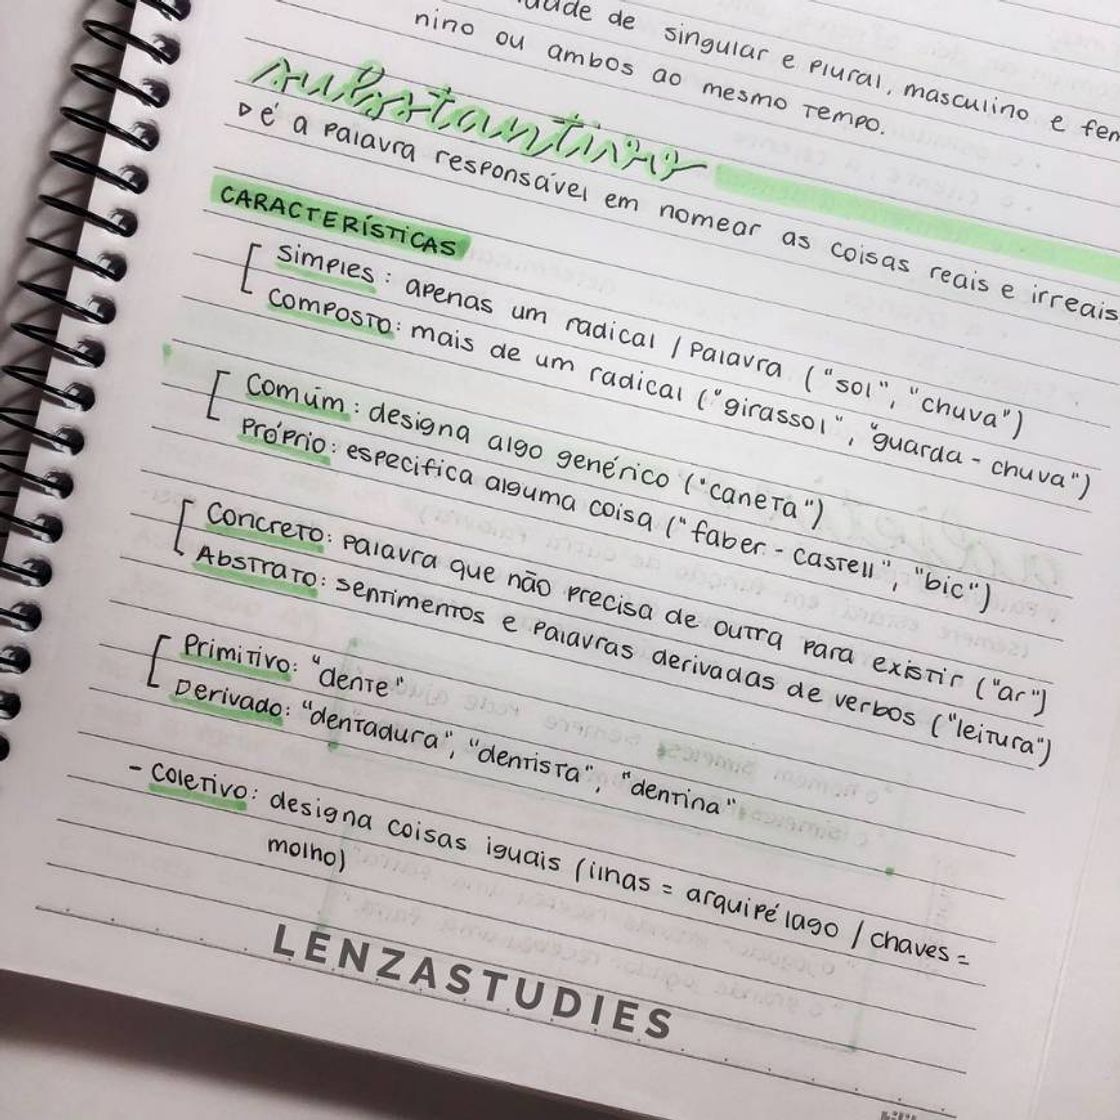 de singular e plural, masculino e fem
nino ou ambos ao mesmo tempo.
substantivo
▷ é a palavra responsável em nomear as coisas reais e irreais
CARACTERÍSTICAS
Simples: apenas um radical / palavra ("sol", "chuva")
Composto: mais de um radical ("girassol", "guarda-chuva")
Comúm: designa algo genérico ("caneta")
Próprio: especifica alguma coisa ("faber-castell", "bic")
Concreto: palavra que não precisa de outra para existir ("ar")
Abstrato: sentimentos e palavras derivadas de verbos ("leitura")
Primitivo: "dente"
Derivado: "dentadura", "dentista", "dentina"
- Coletivo: designa coisas iguais (ilhas = arquipélago / chaves =
molho)
LENZASTUDIES